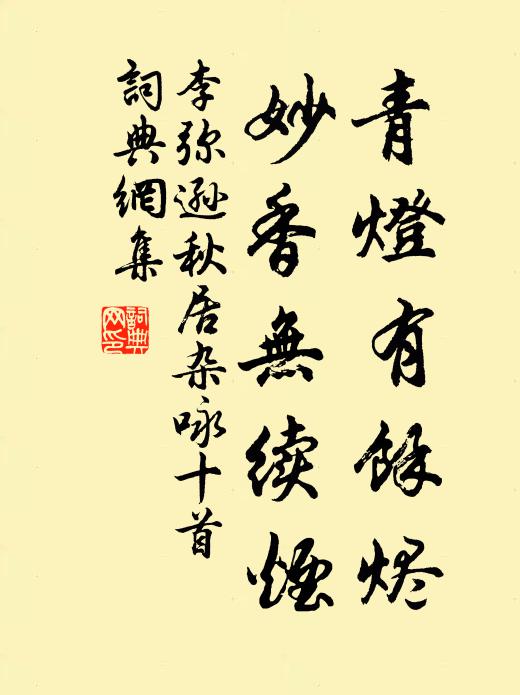 青燈有餘烬
妙香無续煙
李弥遜秋居杂咏十首
詞典網集
詞典网印